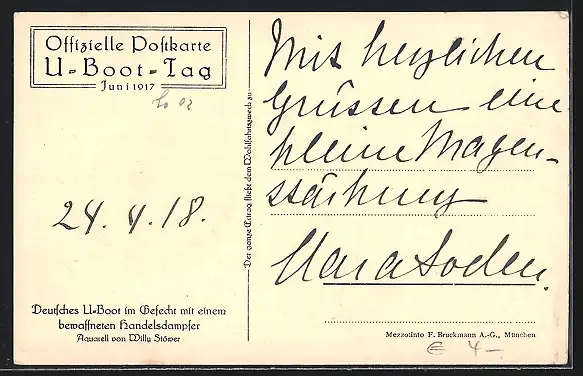 Offizielle Postkarte
U-Boot-Tag
Juni 1917
24. 4. 18.
Deutsches U-Boot im Gefecht mit einem
bewaffneten Handelsdampfer
Aquarell von Willy Stöwer
Der ganze Ertrag fließt dem Wohlfahrtszweck zu
Mit herzlichen
Grüssen eine
kleine Magen-
stärkung
Mezzotinto F. Bruckmann A.-G., München
€ 4-